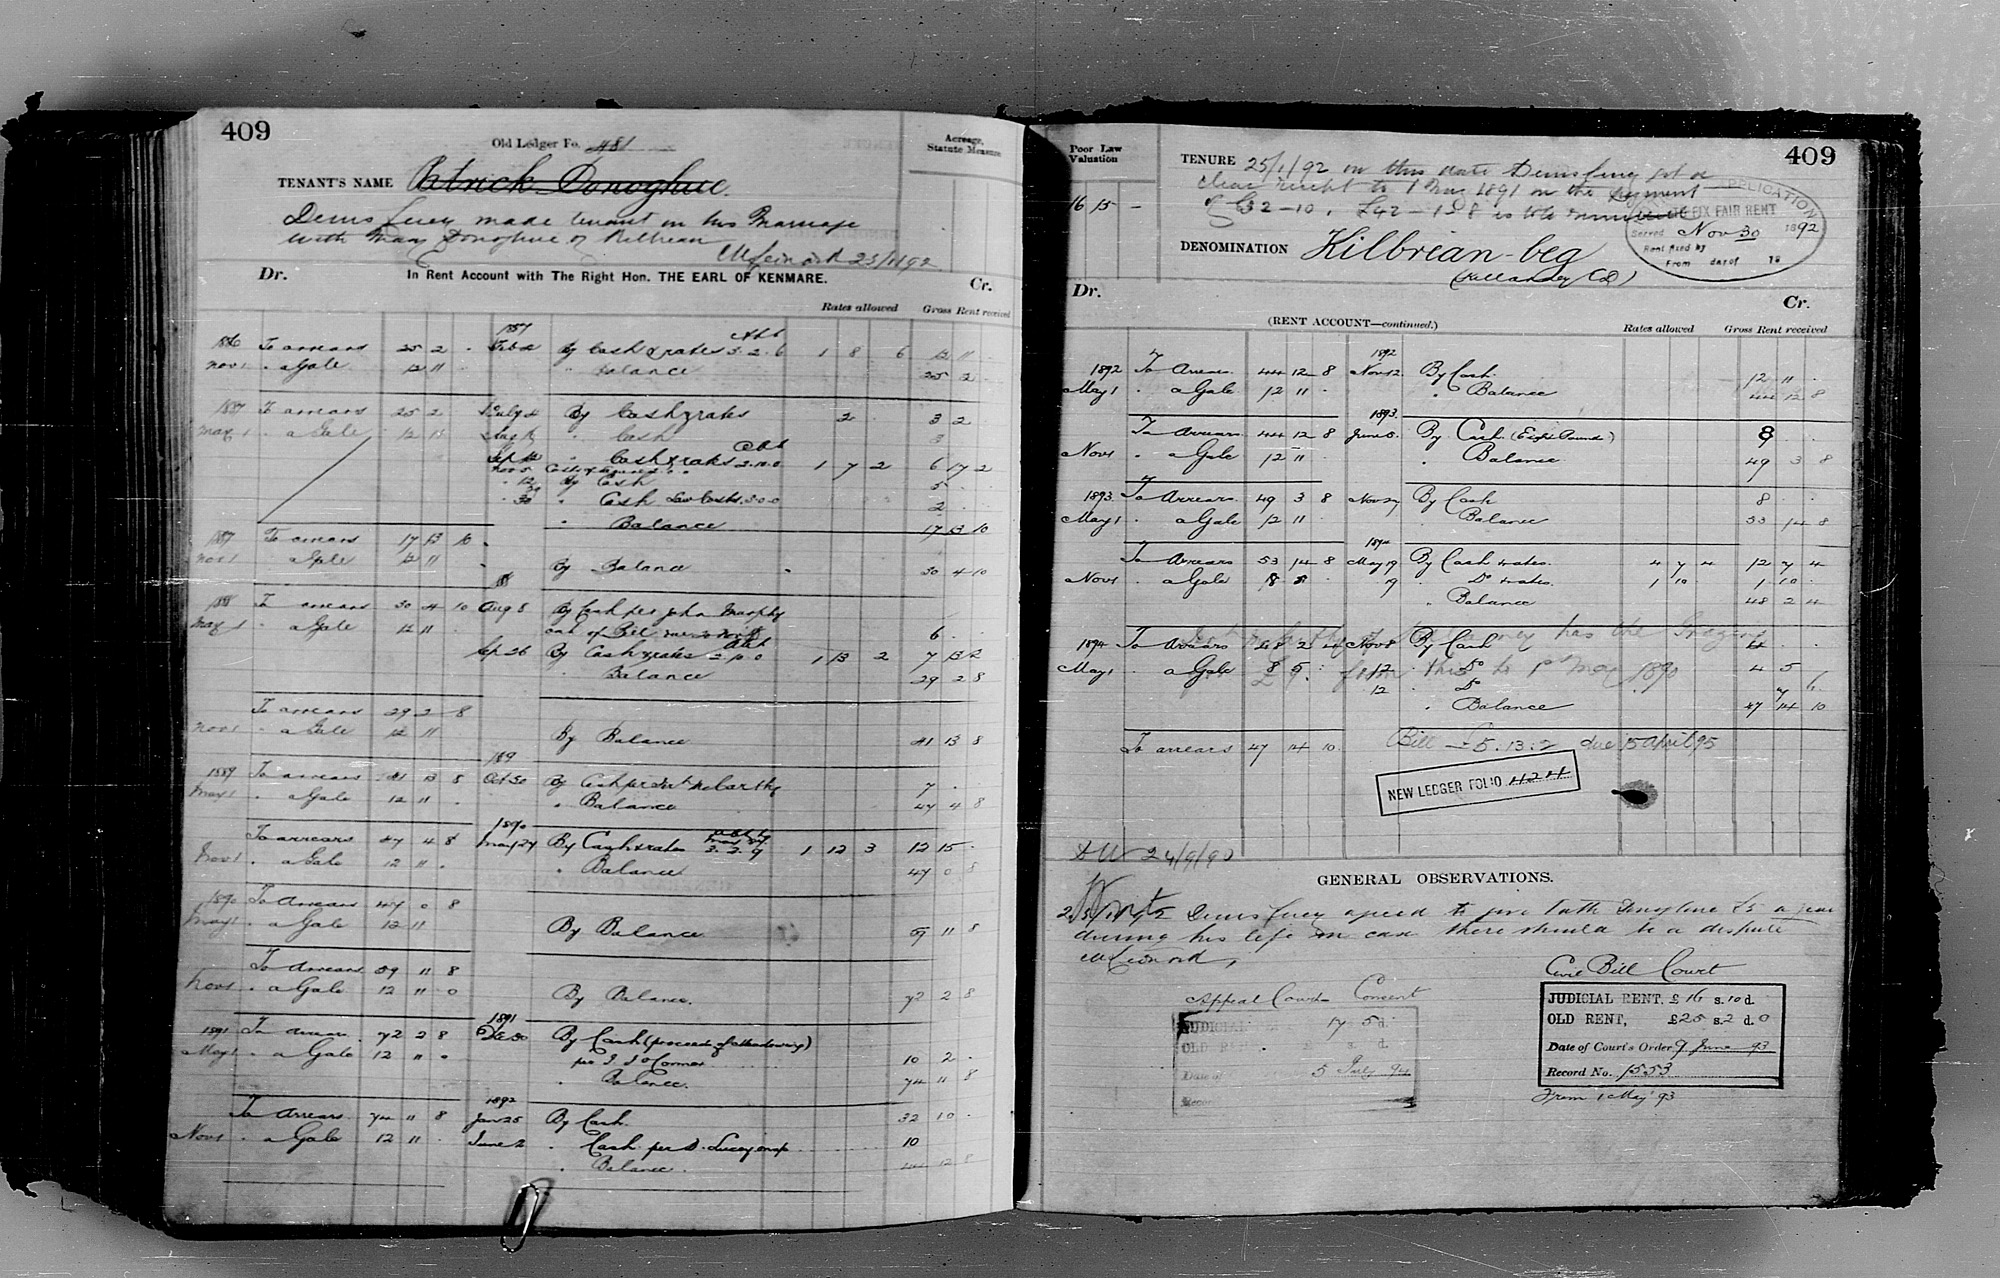 409
Old Ledger Fo. 481
Acreage, Statute Measure
TENANT'S NAME Patrick Donoghue.
Denis Lucey made tenant on his Marriage
with Mary Donoghue of Kilbrean
M Leonard 25/1/92
Dr. In Rent Account with The Right Hon. THE EARL OF KENMARE. Cr.
Rates allowed Gross Rent received
1887 Abt
1886 To arrears 25 2 . Feb By Cash & rates 3.2.6 1 8 6 12 11 .
Nov 1 . a Gale 12 11 . " Balance 25 2 .
1887 To arrears 25 2 July By Cash & rates 2 . 3 2
May 1 . a Gale 12 11 Aug " Cash 3
Abt
Sep " Cash & rates 2.10.0 1 7 2 6 17 2
Nov 5
" 12 By Cash 5 .
" 30 " Cash Law Costs 3.0.0 2 .
" Balance 17 13 10
1887 To arrears 17 13 10
Nov 1 a Gale 12 11 By Balance 30 4 10
88
1888 To arrears 30 4 10 Aug 8 By Cash per John Murphy
May 1 . a Gale 12 11 . 6 .
Abt
Sep 26 By Cash & rates 2.10.0 1 13 2 7 13 2
" Balance 29 2 8
To arrears 29 2 8
Nov 1 . a Gale 12 11 By Balance 41 13 8
189
1889 To arrears 41 13 8 Oct 30 By Cash per McCarthy 7 .
May 1 . a Gale 12 11 . " Balance 47 4 8
1890
To arrears 47 4 8 May 24 By Cash & rates 3.2.9 1 12 3 12 15 .
Nov 1 . a Gale 12 11 . " Balance 47 0 8
1890 To arrears 47 0 8
May 1 . a Gale 12 11 By Balance 59 11 8
To Arrears 59 11 8
Nov 1 . a Gale 12 11 0 By Balance. 72 2 8
1891
1891 To arrears 72 2 8 30 By Cash (proceeds of Meadowing)
May 1 . a Gale 12 11 0 per J. J. O'Connor 10 2 .
" Balance. 74 11 8
1892
To Arrears 74 11 8 Jan 25 By Cash. 32 10 .
Nov 1 . a Gale 12 11 . June 2 " Cash per D. Lucey 10
" Balance. 44 12 8
409
Poor Law Valuation
16 15 -
TENURE 25/1/92 on this date Denis Lucey got a
clear receipt to 1 Nov 1891 on the payment
of £32-10.
DENOMINATION Kilbrian-beg
(Killarney CD)
APPLICATION
TO FIX FAIR RENT
Served Nov 30 1892
Rent fixed by
From day of 18
Dr. Cr.
(RENT ACCOUNT—continued.) Rates allowed Gross Rent received
1892
1892 To Arrears 44 12 8 Nov 12 By Cash. 12 11 .
May 1 . a Gale 12 11 . " Balance 44 12 8
1893.
To Arrears 44 12 8 June 8. By Cash (Eight Pounds) 8 . .
Nov 1 . a Gale 12 11 . " Balance 49 3 8
1893. To Arrears 49 3 8 Nov 27 By Cash 8 . .
May 1 . a Gale 12 11 " Balance 53 14 8
1894
To Arrears 53 14 8 May 19 By Cash & rates. 4 7 4 12 7 4
Nov 1 . a Gale 8 5 . 19 " Do & rates. 1 10 . 1 10 .
" Balance 48 2 4
1894 To Arrears 48 2 4 Nov 8 By Cash 4 . .
has the Grazing
May 1 . a Gale 8 5 . " 12 " Do 4 5
from this to 1st May 1890
12 " Do 7 6
" Balance 47 14 10
To arrears 47 14 10. Bill £5.13.2 due 15 April 95
NEW LEDGER FOLIO 424
24/9/90
GENERAL OBSERVATIONS.
25/1/92 Denis Lucey agreed to give Donoghue £5 a year
during his life in case there should be a dispute
M Leonard.
Civil Bill Court
JUDICIAL RENT, £16 s.10 d.
OLD RENT, £25 s.2 d.0
Date of Court's Order 9 June 93
Record No. 1553
From 1 May 93
Appeal Court Consent
JUDICIAL 17 5 d.
OLD RENT s. d.
Date of 5 July 94
Record